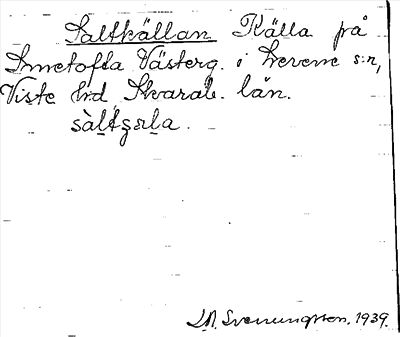 Saltkällan Källa på
Smetofta Västerg. i Levene s:n,
Viste hrd Skarab. län.
sàltʒɛla.
Svenungsson, 1939.